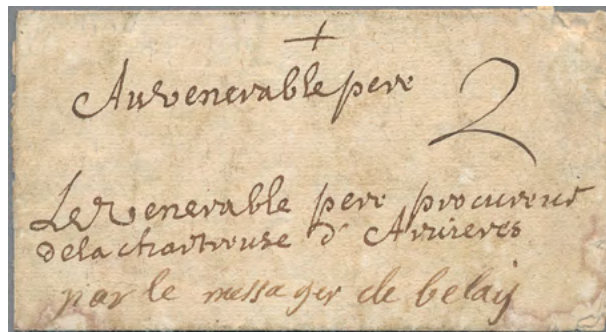 +
Au venerable pere 2
Le Venerable pere procureur
de la chartreuse d' Arvieres
par le messager de belay